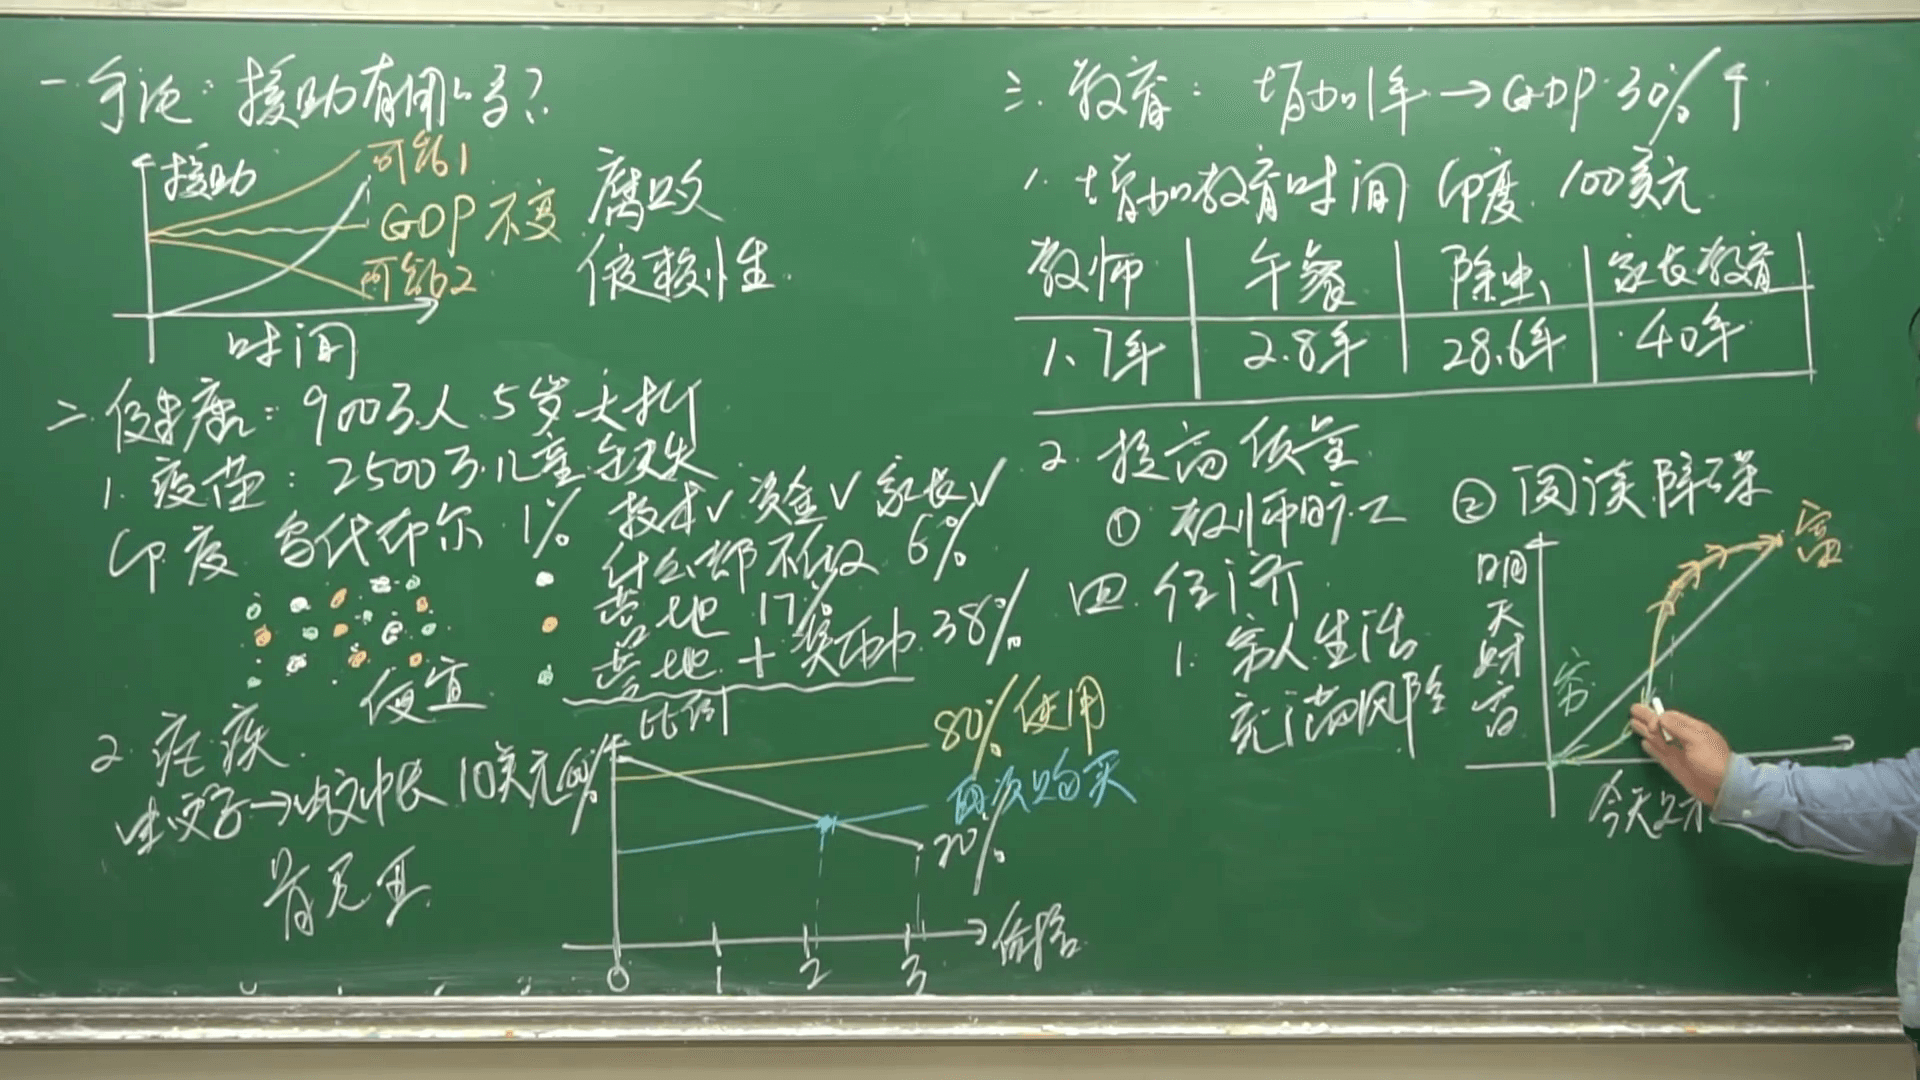 一.争论:援助有用吗?
援助
可能1
GDP不变
可能2
时间
腐败
依赖性
二.健康:900万人 5岁夭折
1.疫苗:2500万儿童缺失
印度 乌代布尔 1% 技术√ 资金√ 家长√
什么都不做 6%
营地 17%
营地+奖品 38%
便宜
2.疟疾
蚊帐 10美元
肯尼亚
比例
80%使用
再次购买
70%
0 1 2 3
价格
三.教育:增加1年→GDP 30%↑
1.增加教育时间 印度 100美元
教师 午餐 除虫 家长教育
1.7年 2.8年 28.6年 40年
2.提高质量
①教师旷工
②阅读障碍
四.经济
1.穷人生活
充满风险
明天财富
穷
富
今天财